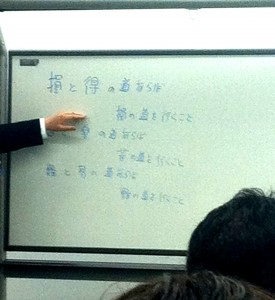 損と得の道有らば
損の道を行くこと
楽の道有らば
苦の道を行くこと
難と易の道有らば
難の道を行くこと